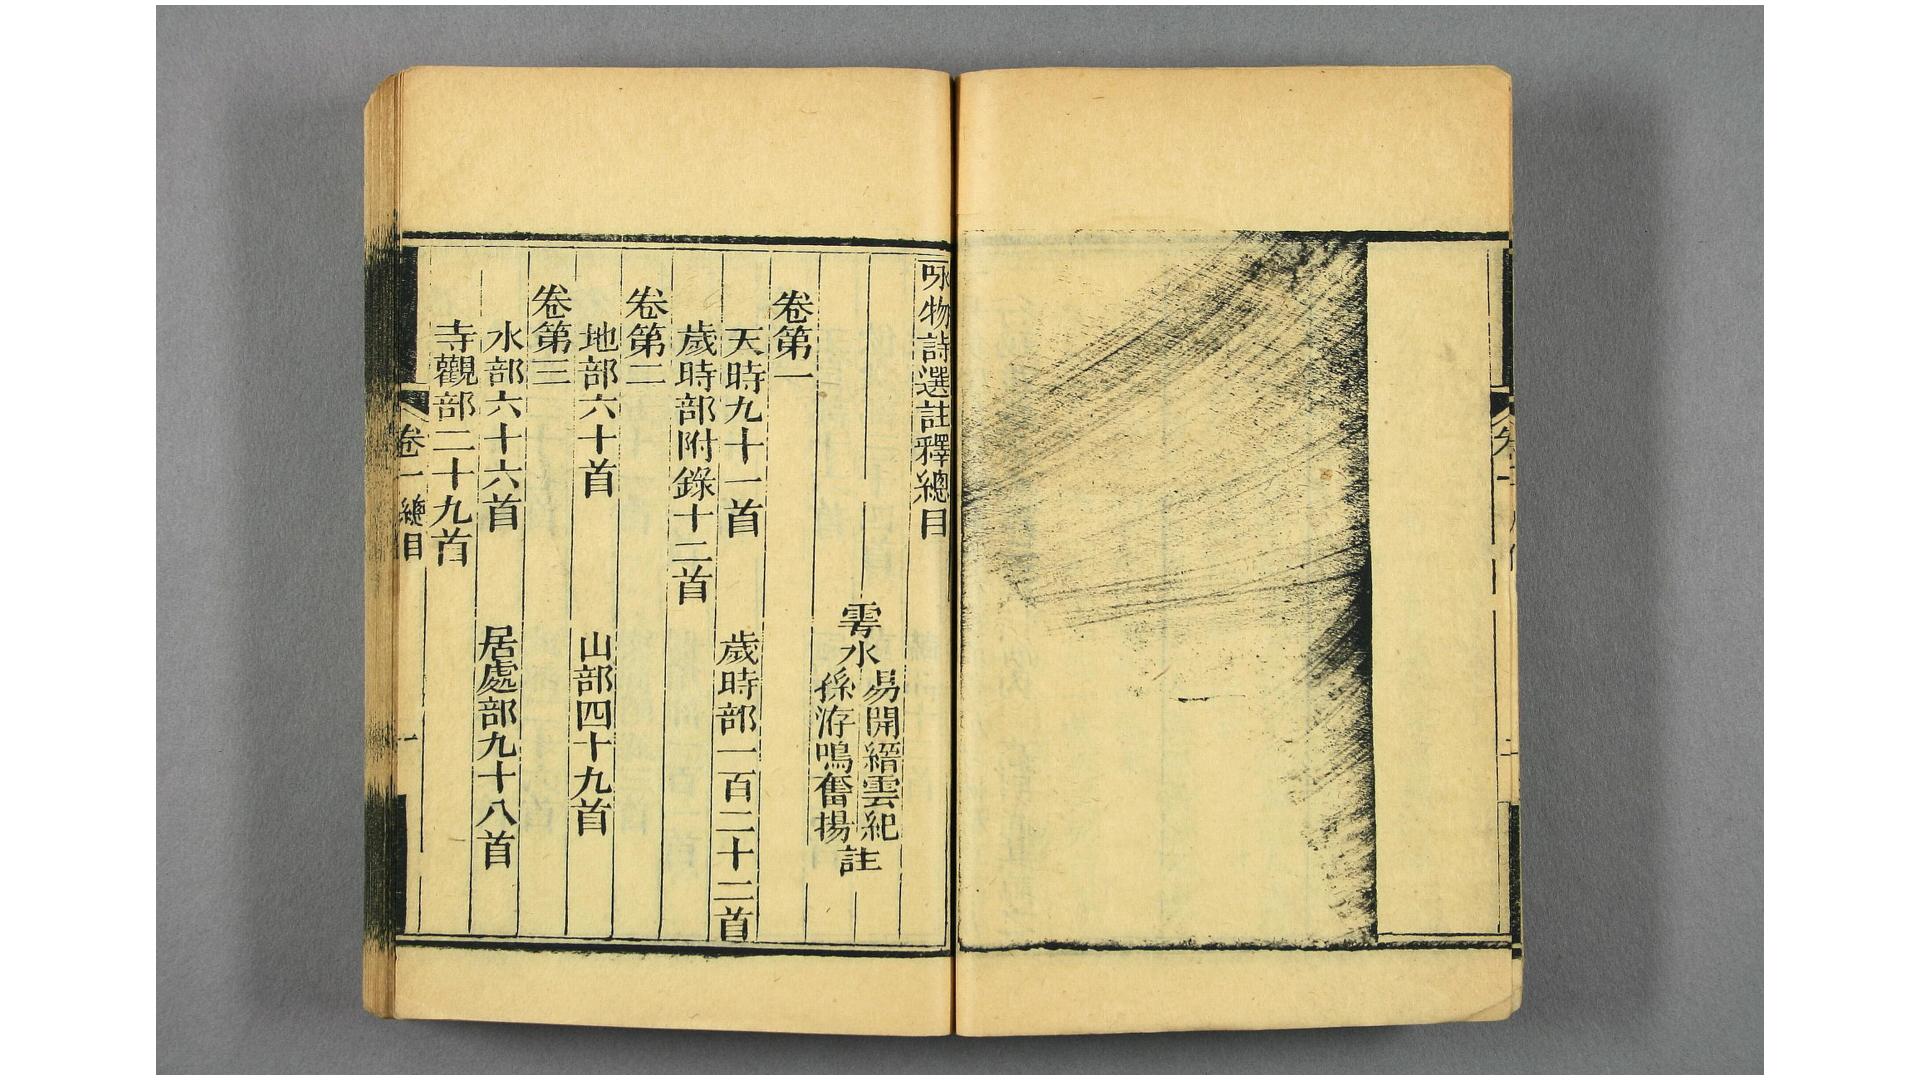 咏物詩選註釋總目
雩水
易開縉雲紀
孫洊鳴奮揚
註
卷第一
天時九十一首 歲時部一百二十二首
歲時部附錄十二首
卷第二
地部六十首 山部四十九首
卷第三
水部六十六首 居處部九十八首
寺觀部二十九首
卷一 總目 一